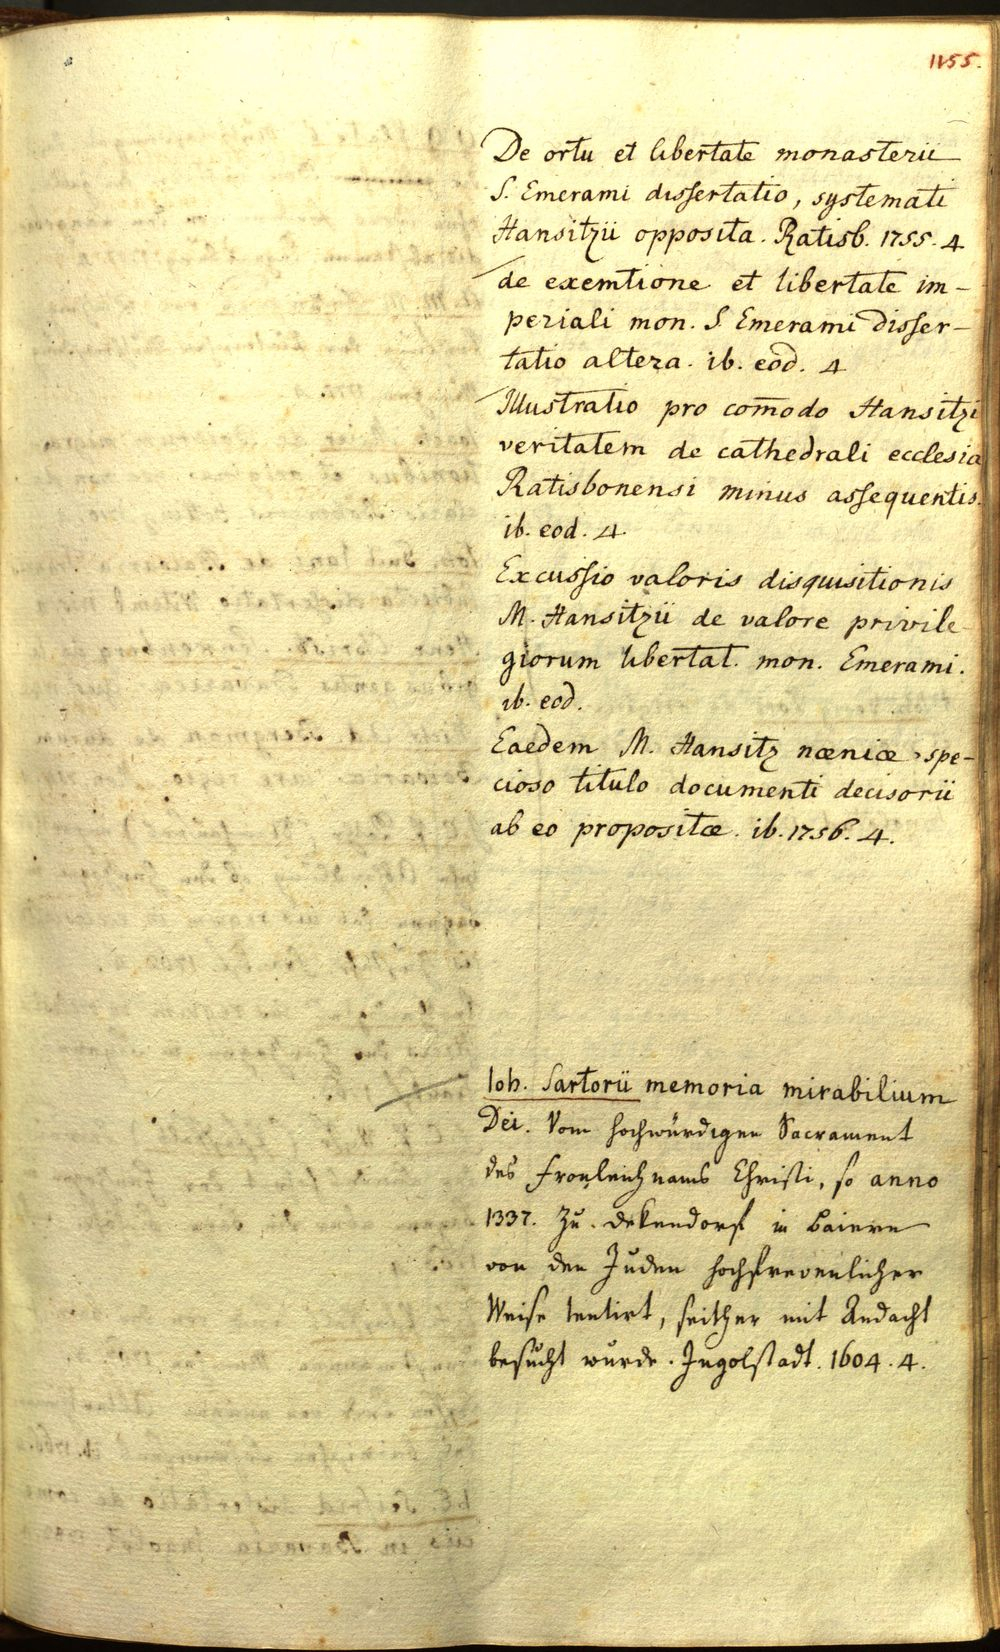 1155.
De ortu et libertate monasterii
S. Emerami dissertatio, systemati
Hansitzii opposita. Ratisb. 1755. 4
de exemtione et libertate im-
periali mon. S. Emerami disser-
tatio altera. ib. eod. 4
Illustratio pro com̄odo Hansitzi
veritatem de cathedrali ecclesia
Ratisbonensi minus assequentis.
ib. eod. 4.
Excussio valoris disquisitionis
M. Hansitzii de valore privile
giorum libertat. mon. Emerami.
ib. eod.
Eaedem M. Hansitz næniæ spe-
cioso titulo documenti decisorii
ab eo propositæ. ib. 1756. 4.
Ioh. Sartorii memoria mirabilium
Dei. Vom hochwürdigen Sacrament
des Fronleichnams Christi, so anno
1337. zu Dekendorf in Baiern
von den Juden hochfrevenlicher
Weise tentirt, seither mit Andacht
besucht wurde. Ingolstadt. 1604. 4.